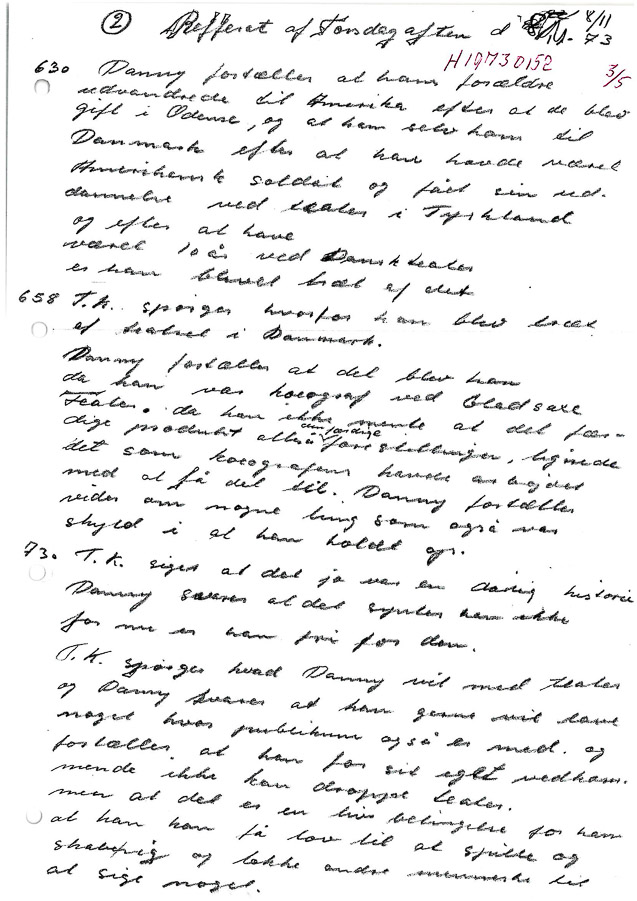 ② Refferat af Torsdag aften d 8/11. 73
H19730152 3/5
630 Danny fortæller at hans forældre
udvandrede til Amerika efter at de blev
gift i Odense, og at han selv kom til
Danmark efter at han havde været
Amerikansk soldat og fået sin ud-
dannelse ved teater i Tyskland
og efter at have
været 10 år ved Dansk teater
er han blevet træt af det
658 T.K. spørger hvorfor han blev træt
af teatret i Danmark.
Danny fortæller at det blev han
da han var koreograf ved Gladsaxe
Teater. da han ikke mente at det fær-
dige produkt altså den færdige forestillinger, lignede
det som koreografen havde arbejdet
med at få det til. Danny fortæller
vider om nogne ting som også var
skyld i at han holdt op.
73. T.K. siger at det jo var en dårlig historie
Danny svarer at det syntes han ikke
for nu er han fri for den.
T.K. spørger hvad Danny vil med teater
og Danny svarer at han gerne vil lave
noget hvor publikum også er med. og
fortæller at han for sit eget vedkom-
mende ikke kan droppe teater.
men at det er en livs betingelse for ham
at han kan få lov til at spille og
skabe og lokke andre menneske til
at sige noget.